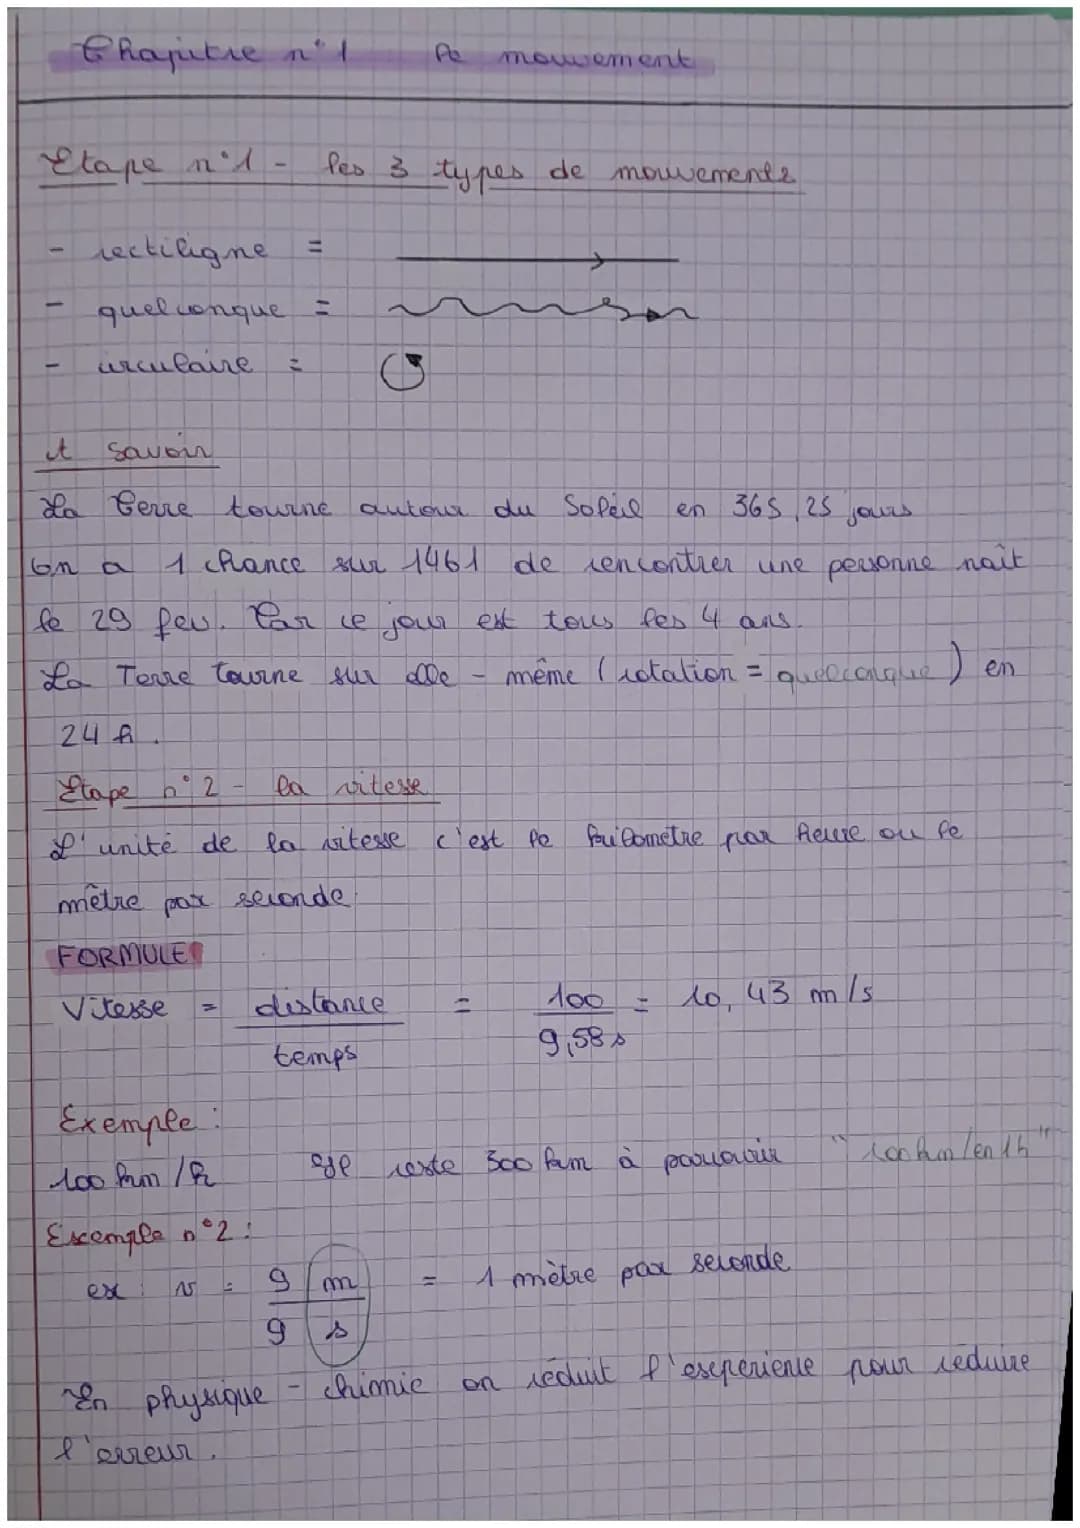 Chapitre n°1 le mouvement
Etape n°1 - les 3 types de mouvements
- rectiligne =
- quelconque =
- circulaire =
A savoir
La Terre tourne autour du Soleil en 365,25 jours
On a 1 chance sur 1461 de rencontrer une personne naît
le 29 fev. Car ce jour est tous les 4 ans.
La Terre tourne sur elle - même (rotation = quelconque) en
24 h.
Etape n°2 - la vitesse
L'unité de la vitesse c'est le kilomètre par heure ou le
mètre par seconde.
FORMULE
Vitesse = distance = 100 = 10,43 m/s
temps 9,58 s
Exemple :
100 km/h reste 300 km à parcourir "100km/en 1h"
Exemple n°2 :
ex : v = 9 m = 1 mètre par seconde
9 s
En physique - chimie on réduit l'experience pour réduire
l'erreur.